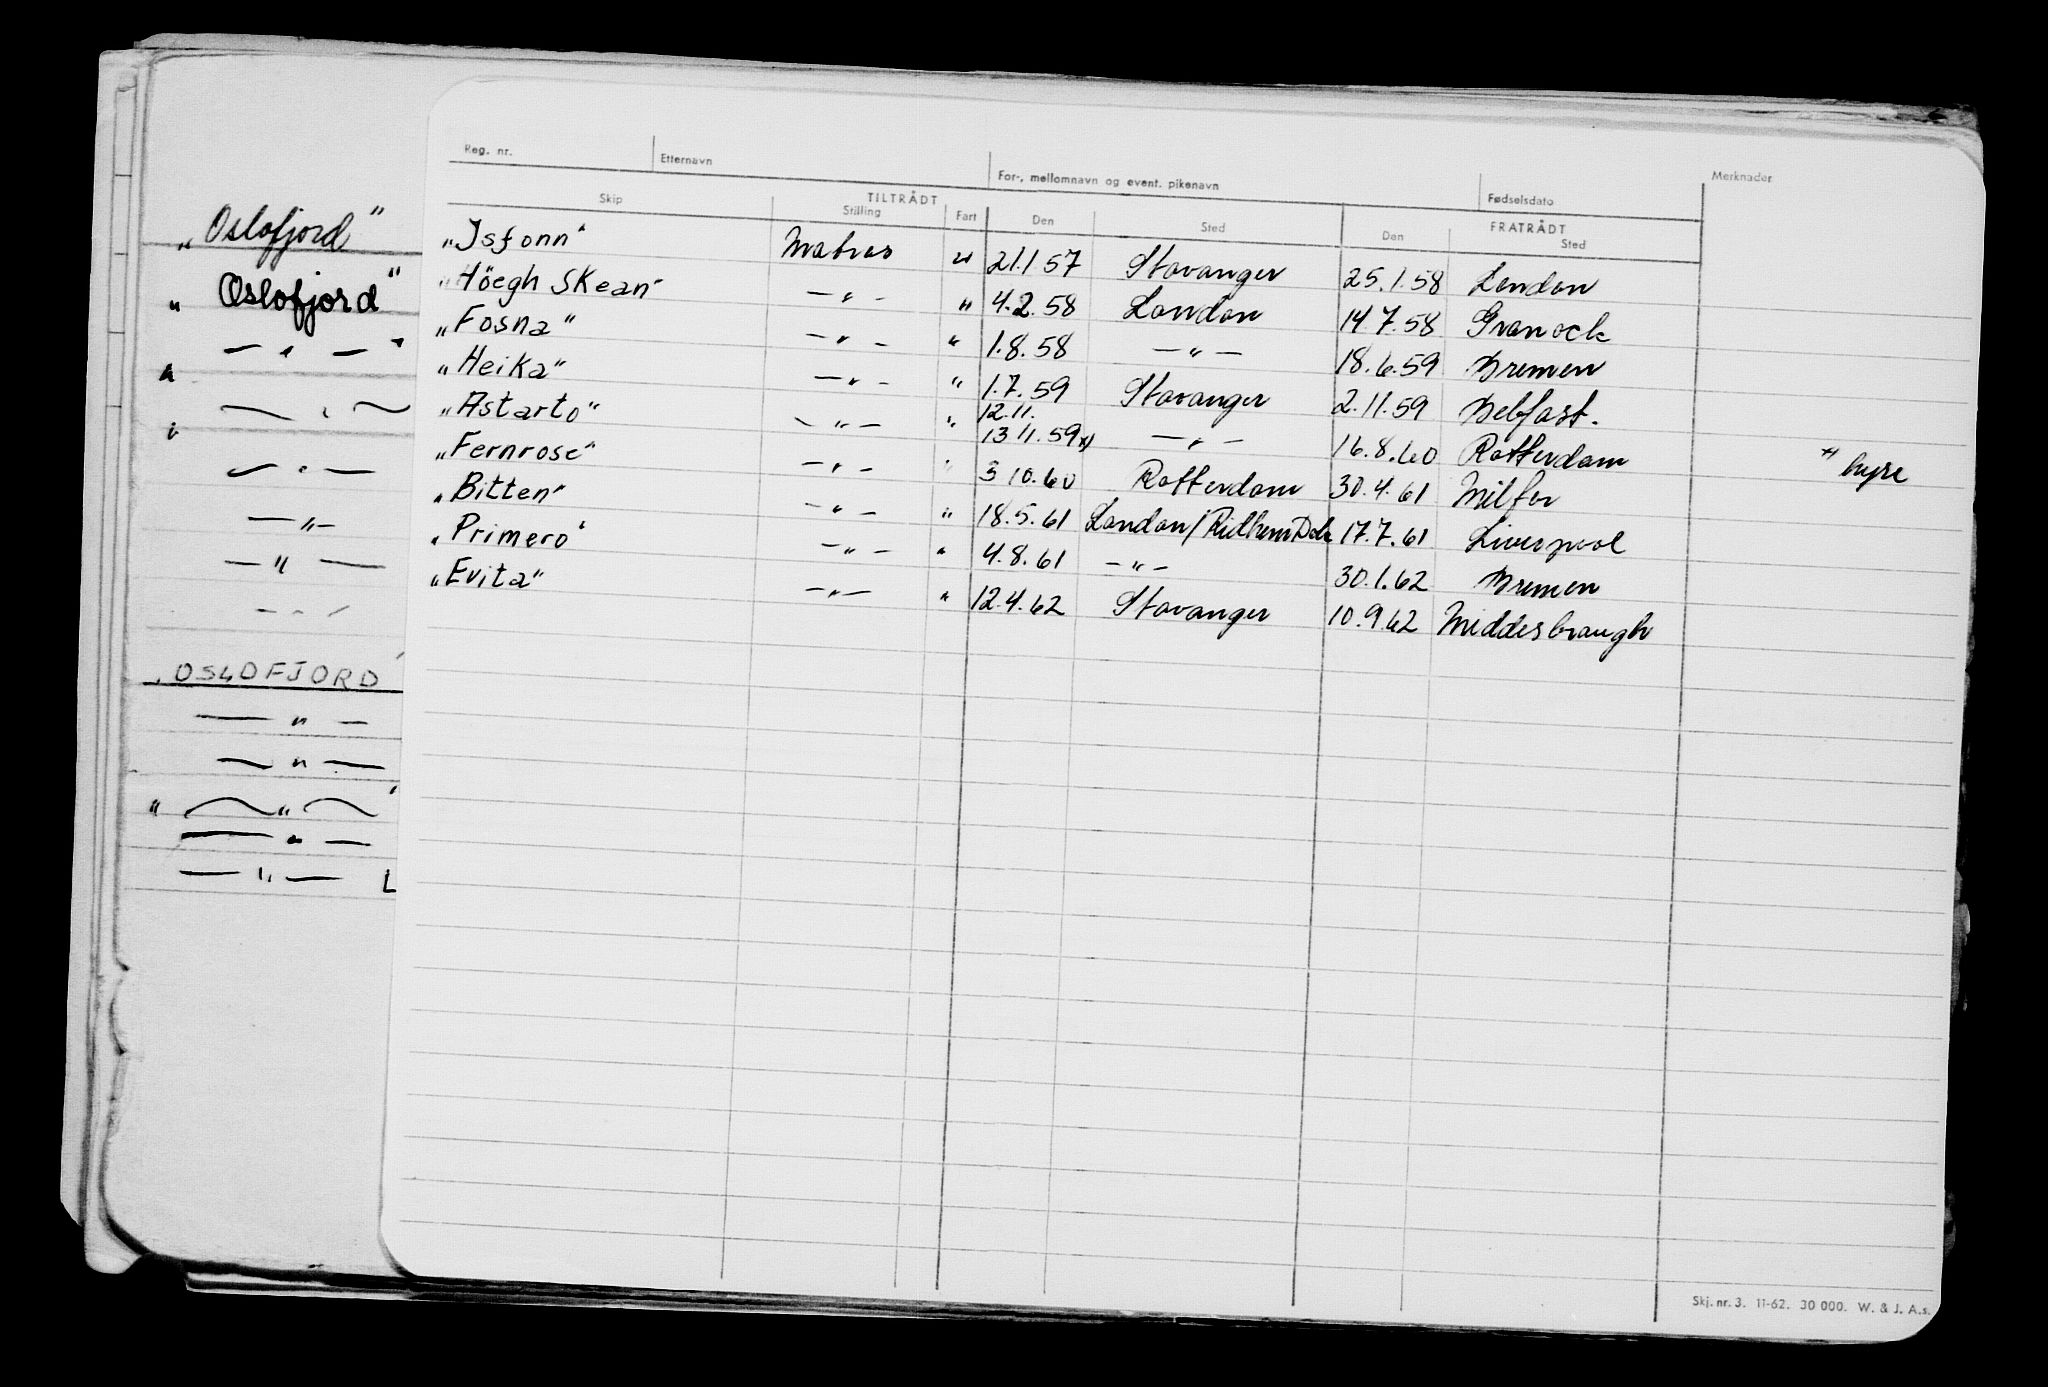 Reg. nr. Etternavn For-, mellomnavn og event. pikenavn Fødselsdato Merknader
Skip TILTRÅDT Stilling Fart Den Sted FRATRÅDT Den Sted
„Isfonn" Matros " 21.1 57 Stavanger 25.1.58 London
„Höegh Skean" — " — " 4.2.58 London 14 7.58 Granock
„Fosna" — " — " 1.8.58 — " — 18.6.59 Bremen
„Heika" — " — " 1.7.59 Stavanger 2.11.59 Belfast.
12.11.
„Astarto" — " — " 13 11.59 x) — " — 16.8.60 Rotterdam x) hyre
„Fernrose" — " — " 3 10.60 Rotterdam 30.4.61 Milfor
„Bitten" — " — " 18.5.61 London/Ridhem Dok 17.7.61 Liverpool
„Primero" — " — " 4.8.61 — " — 30.1.62 Bremen
„Evita" — " — " 12.4.62 Stavanger 10.9.62 Middesbraugh
Skj. nr. 3. 11-62. 30 000. W. & J. A.s.
„Oslofjord"
„Oslofjord"
— " — "
— " —
— " —
— " —
— " —
— " —
„OSLOFJORD"
— " —
— " —
" — " — "
— " —
— " — L